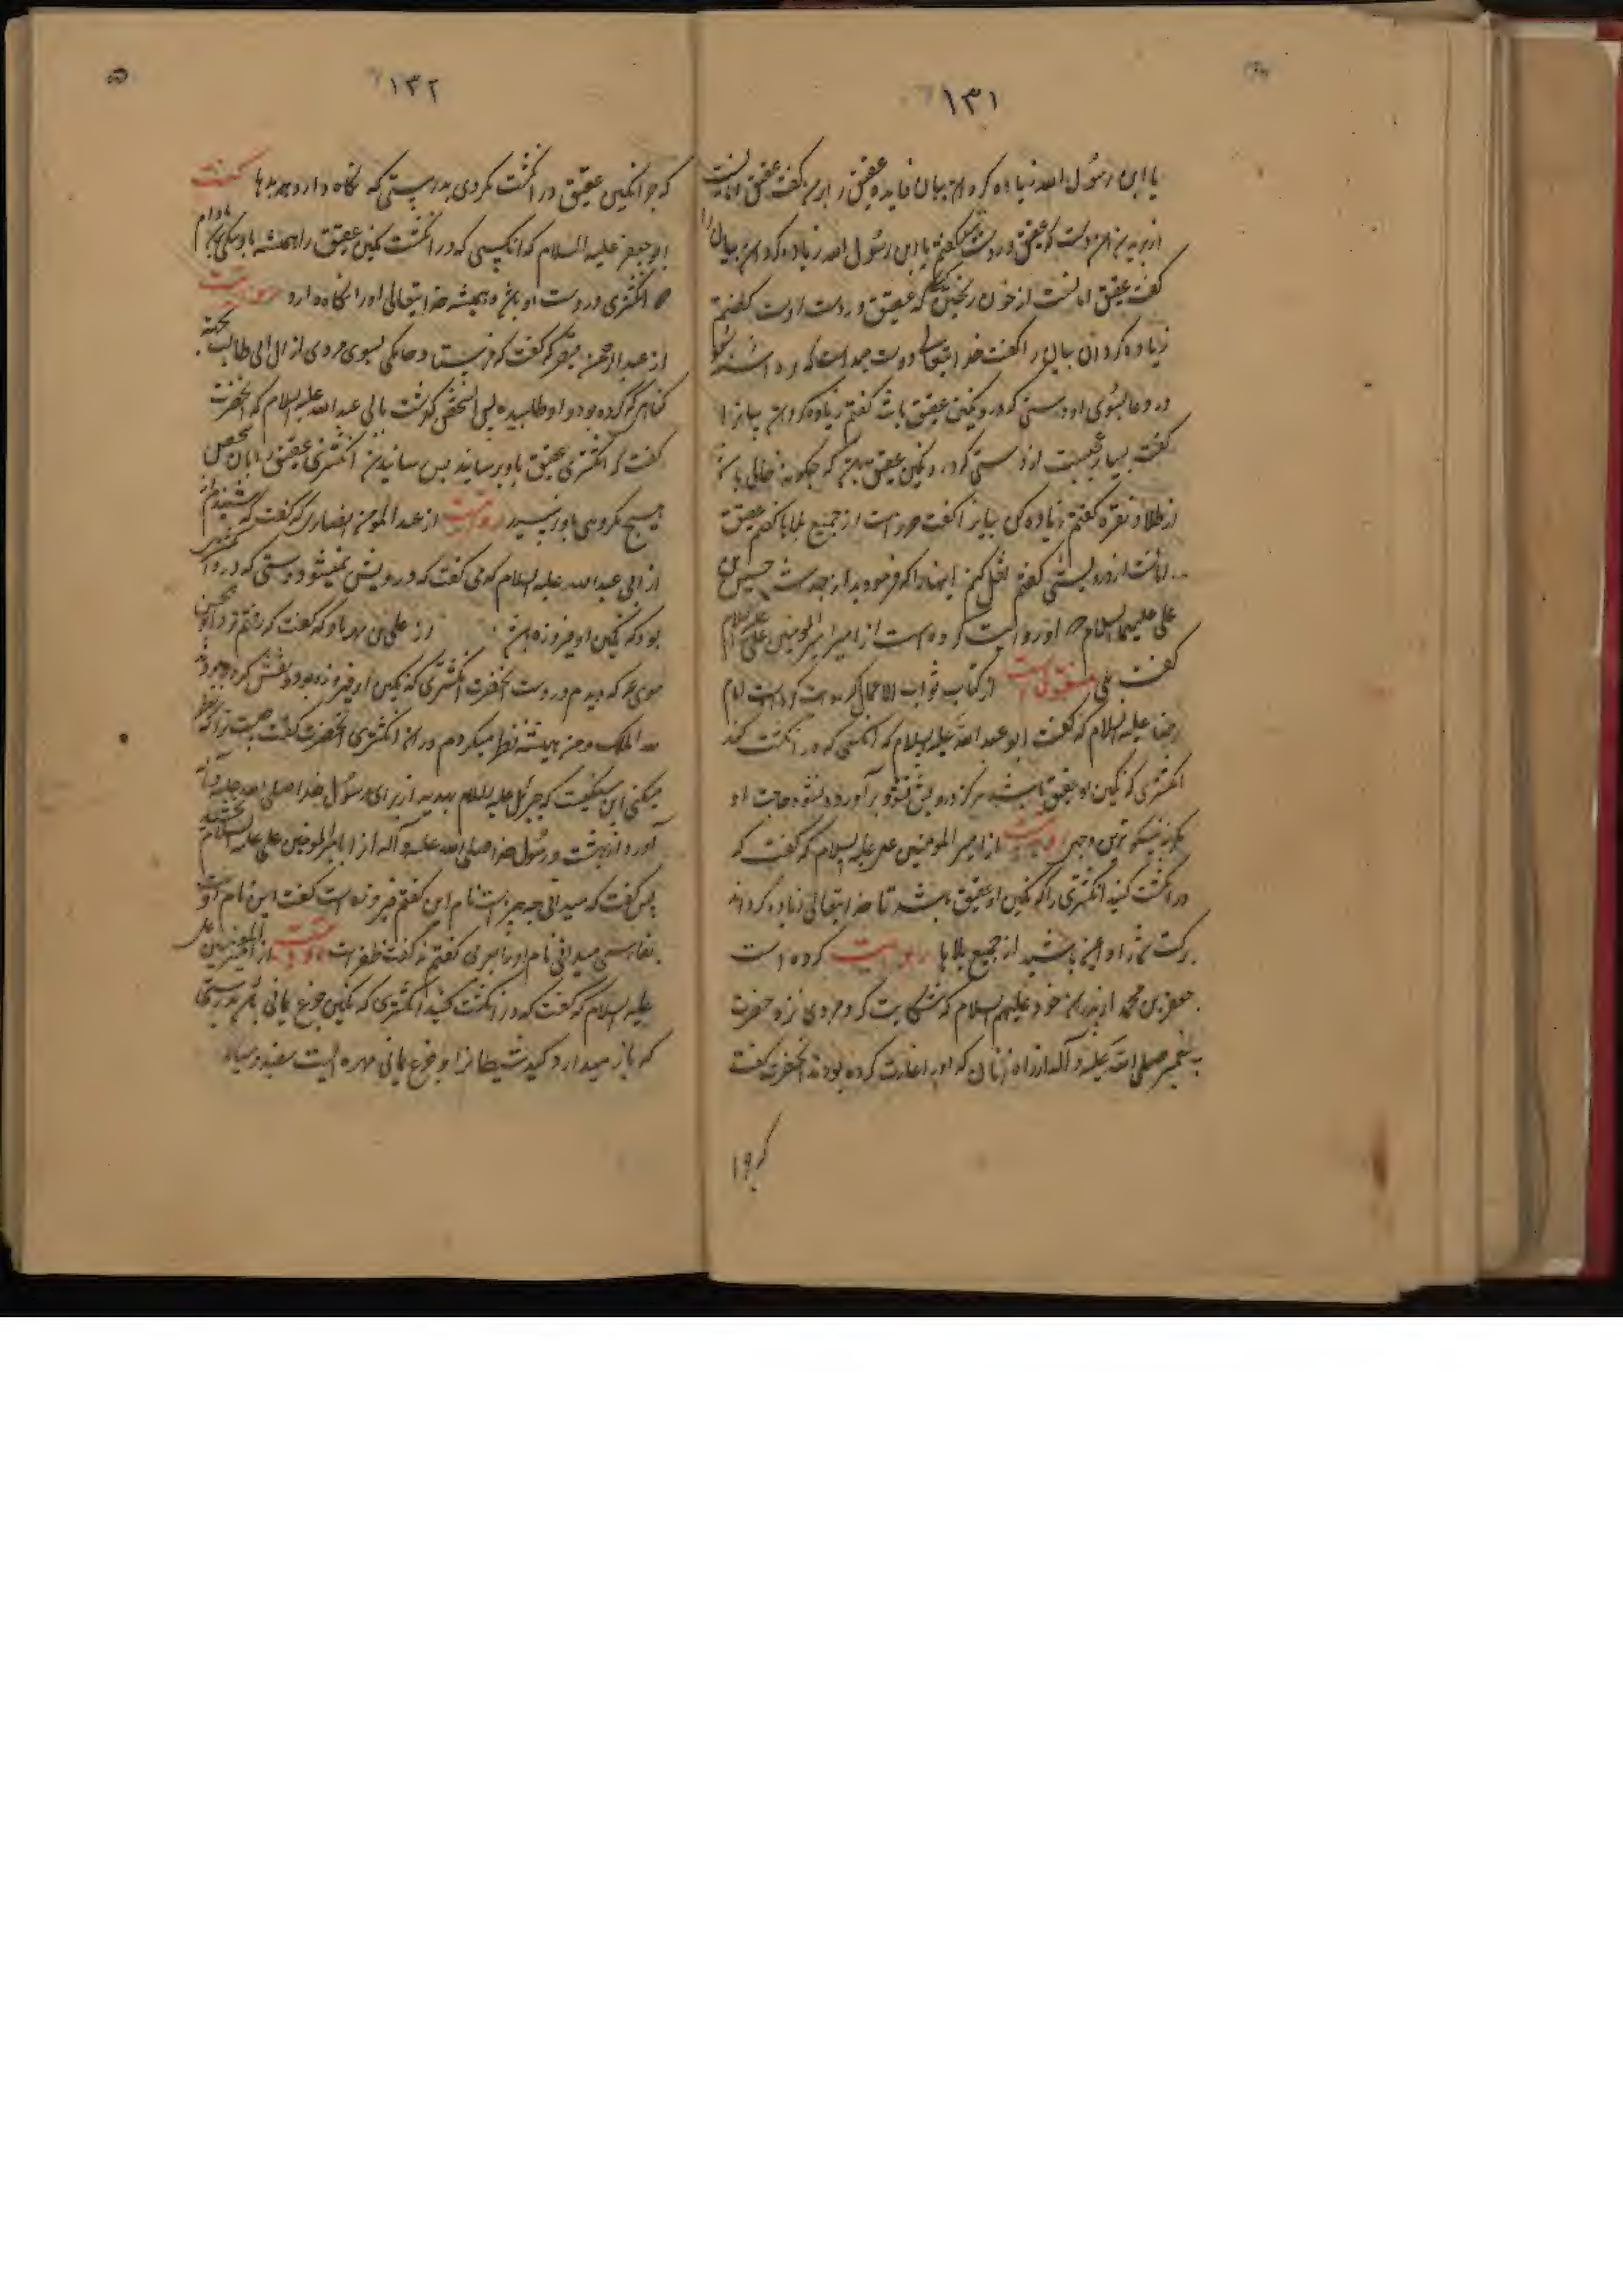 ۱۳۱
یا ابن رسول الله زیاده کردان بیان فایده عقیق را برمن گفت عقیق امانست
از بریدن دست که عقیق در دست گفتم یا ابن رسول الله زیاده کردان بیان را
گفت عقیق امانست از خون ریختن که عقیق در دست اوست گفتم
زیاده کردان بیان را گفت خدایتعالی دوست میدارد که برداشته شود
در دعا بسوی او دستی که در و نگین عقیق باشد گفتم زیاده کردان بیانرا
گفت بسیار عجبست از دستی که در و نگین عقیق که چگونه خالی باشد
از طلا و نقره گفتم زیاده کن بیانرا گفت حرز است از جمیع بلاها گفتم عقیق
امانت از درویشی گفتم نقل کنم اینها را که فرمودید از جدت حسین بن
علی علیهما السلام او روایت کرده است از امیرالمومنین علی علیه السلام
گفت بلی منقولست از کتاب ثواب الاعمال که امام
رضا علیه السلام که گفت ابو عبد الله علیه السلام که آنکسی که در انگشت کند
انگشتری که نگین او عقیق باشد هرگز درویش نشود و برآورده نشود حاجت او
مگر به نیکو ترین وجهی روایت از امیر المومنین علیه السلام که گفت که
در انگشت کنید انگشتری را که نگین او عقیق باشد تا خدایتعالی زیاده کرداند
برکت شما را و ایمن باشید از جمیع بلاها روایت کرده است
جعفر بن محمد از پدران خود علیهم السلام که شکایت کرد مردی نزد حضرت
پیغمبر صلی الله علیه و آله از راه زنان که او را غارت کرده بودند آنحضرت گفت
که چرا
۱۳۲
که چرا نگین عقیق در انگشت نکردی بدرستی که نگاه دارد از بدیها گفت
ابو جعفر علیه السلام که آنکسی که در انگشت نگین عقیق را همیشه با و نیکی مادام
که انگشتری در دست او باشد و همیشه خدایتعالی او را نگاه دارد روایت
از عبد الرحمن که گفت که فرستاد حاکمی بسوی مردی از آل ابی طالب بجهة
گناهی که کرده بود و او طلبیده پس آنشخص گذشت بابی عبد الله علیه السلام که آنحضرت
گفت که انگشتری عقیق باو برسانید پس رسانیدن انگشتری عقیق را بآن شخص
هیچ مکروهی باو نرسید روایت از عبد المومن انصاری که گفت که شنیدم از
از ابی عبد الله علیه السلام که می گفت که درویش نمیشود دستی که در و انگشتری
بود که نگین او فیروزه باشد از علی بن مهزیار که گفت که رفتم نزد ابو الحسن
موسی که دیدم در دست آنحضرت انگشتری که نگین او فیروزه بود و نقش کرده بود
لله الملک و من همیشه نظر میکردم در آن انگشتری آنحضرت گفت چیست ترا که نظر
میکنی این سنگیست که جبرئیل علیه السلام بهدیه از برای رسول خدا صلی الله علیه و آله
آورد از بهشت و رسول خدا صلی الله علیه و آله آنرا بامیر المومنین علی علیه السلام بخشید
پس گفت که میدانی چه چیز است نام این گفتم فیروزه است گفت این نام او
بفارسی میدانی نام او بتازی گفتم نه گفت ظفر است روایت از امیر المومنین علی
علیه السلام که گفت که در انگشت کنید انگشتری که نگین جزع یمانی باشد بدرستی
که باز میدارد کید شیطانرا و جزع یمانی مهره ایست سفید و سیاه